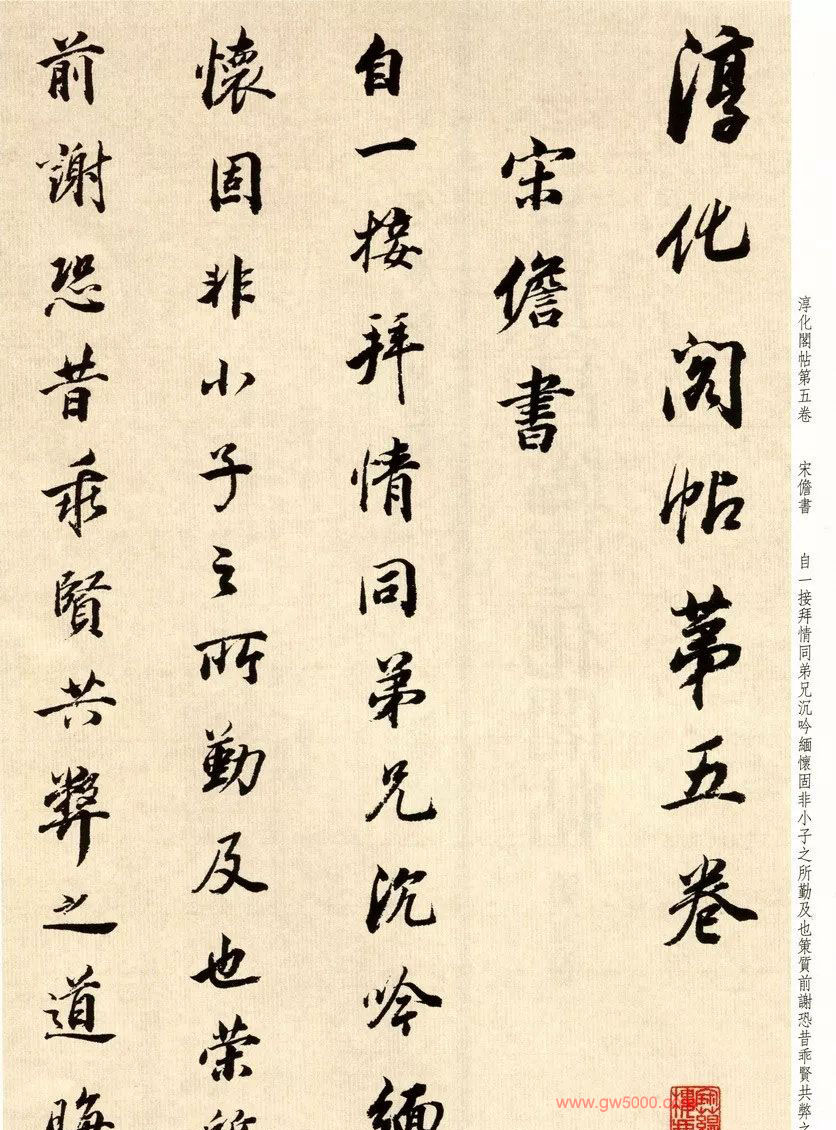 淳化閣帖第五卷
宋儋書
自一接拜情同弟兄沉吟緬
懷固非小子之所勤及也荣
前謝恐昔乖賢共弊之道晦
淳化閣帖第五卷 宋儋書 自一接拜情同弟兄沉吟緬懷固非小子之所勤及也策質前謝恐昔乖賢共弊之
www.gw5000.c